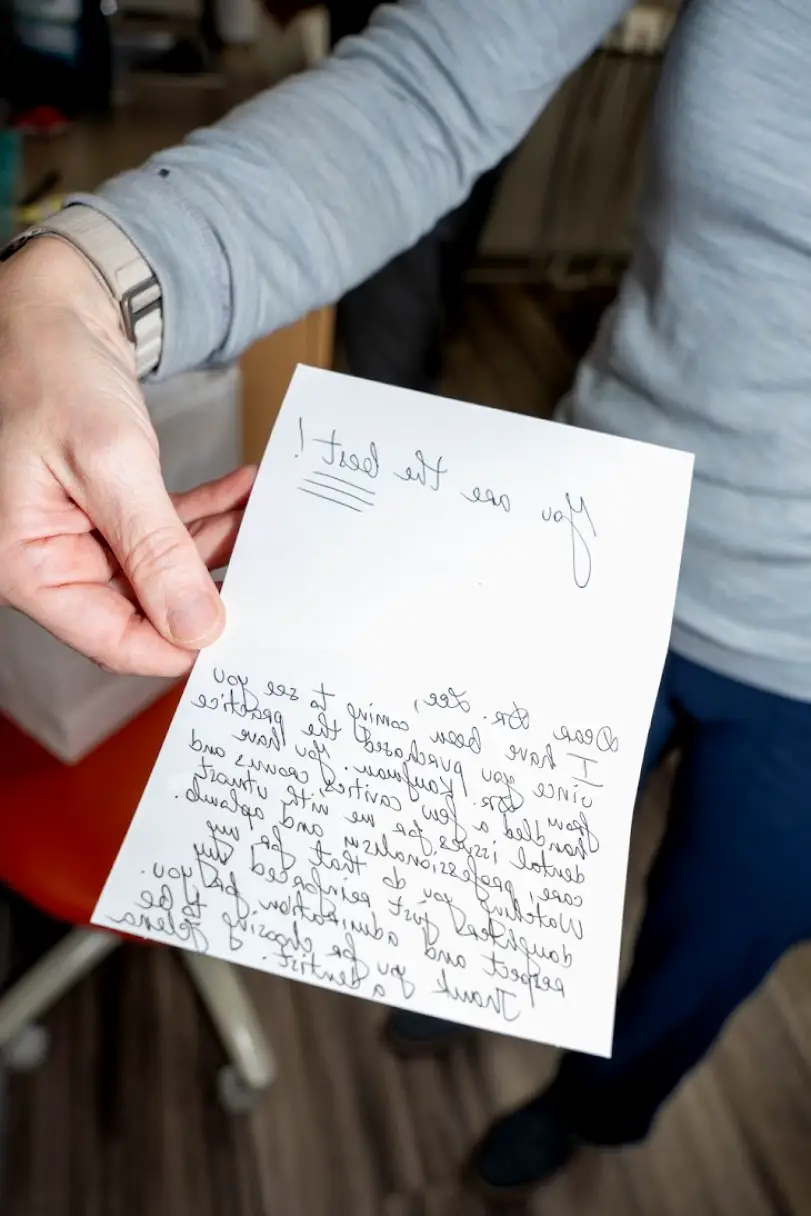 You are the best!
Dear Dr. Lee,
I have been coming to see you
since you purchased the practice
from Dr. Kaufman. You have
handled a few cavities, crowns and
dental issues for me with utmost
care! professionalism and aplomb.
Watching you do that for my
daughters just reinforced my
respect and admiration for you.
Thank you for choosing to be
a dentist. Jelena